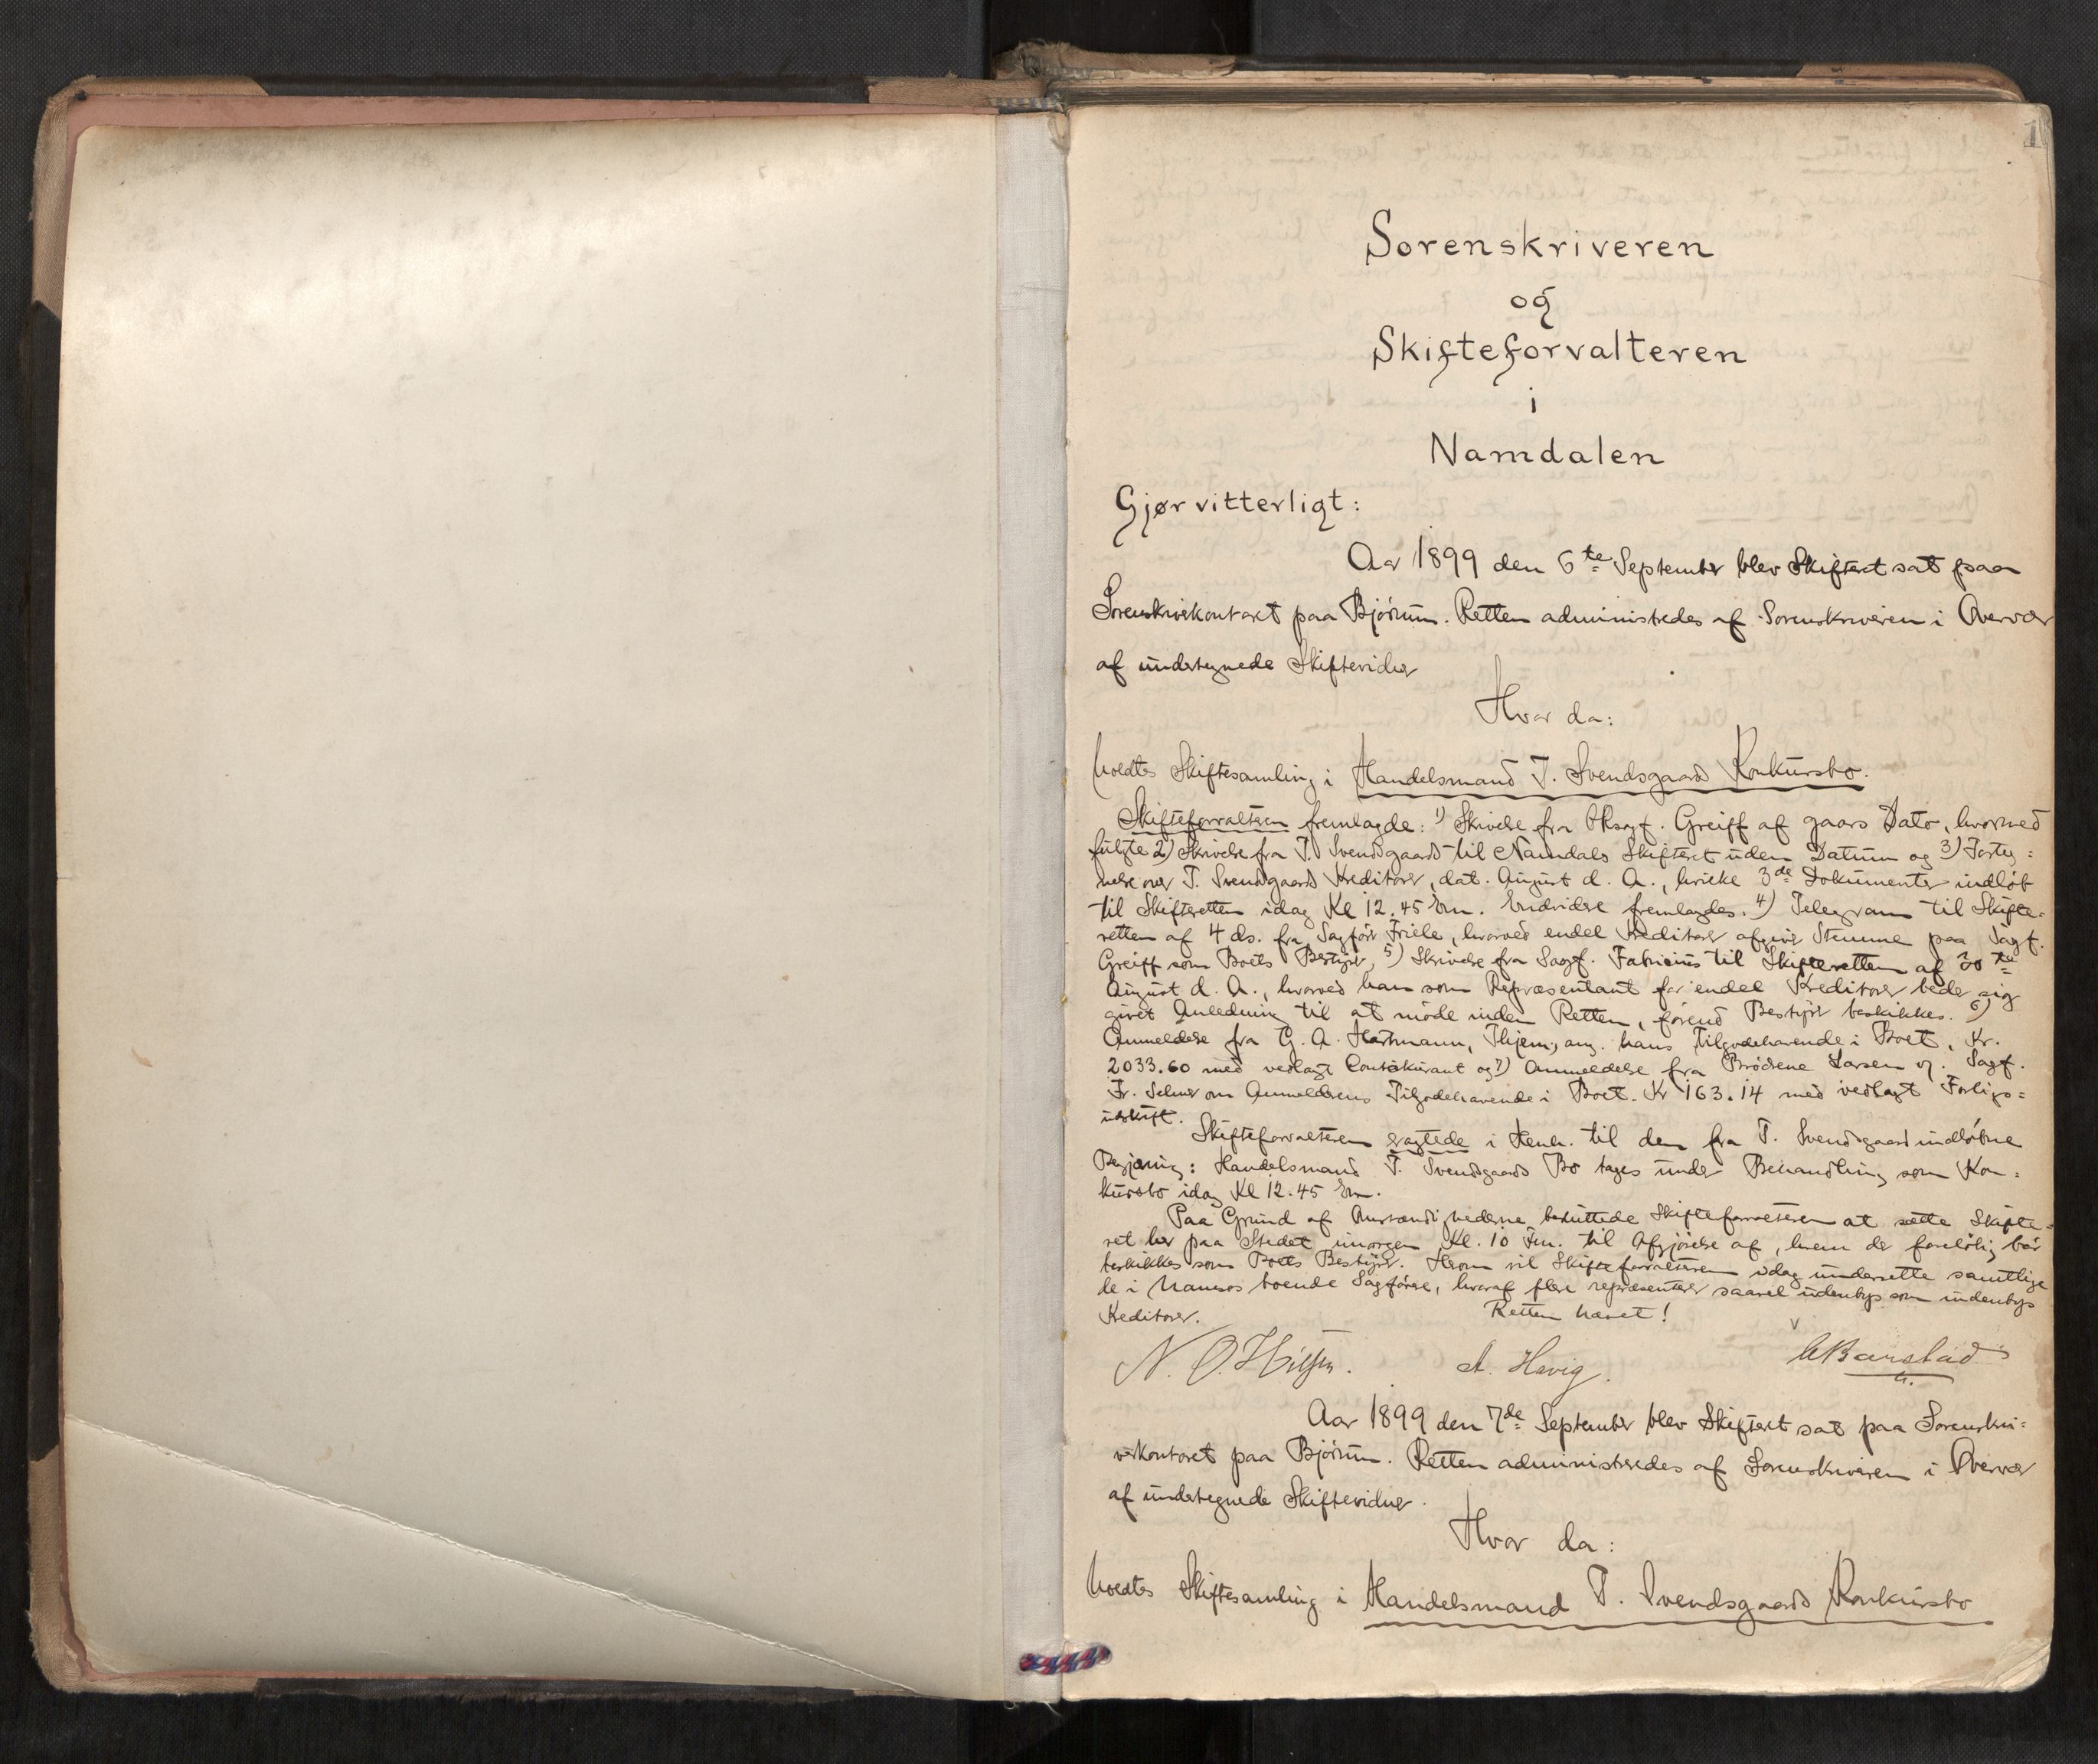 1
Sorenskriveren
og
Skifteforvalteren
i
Namdalen
Gjør vitterligt:
Aar 1899 den 6te September blev Skifteret sat paa
Sorenskriverkontoret paa Bjørum. Retten administredes af Sorenskriveren i Overvær
af undertegnede Skiftevidner
Hvor da:
holdtes Skiftesamling i Handelsmand T. Svendsgaards Konkursbo.
Skifteforvalteren fremlagde: 1) Skrivelse fra Greiff af gaars Dato, hvormed
fulgte 2) Skrivelse fra T. Svendsgaard til Namdals Skifteret uden Datum og 3) Forteg=
nelse over T. Svendsgaards Kreditorer, dat. August d. A., hvilke 3de Dokumenter indløb
til Skifteretten idag Kl 12.45 Em. Endvidere fremlagdes: 4) Telegram til Skifte=
retten af 4 ds. fra Sagfører Friele, hvorved endel Kreditorer afgiver Stemme paa Sagf.
Greiff som Boets Bestyrer, 5) Skrivelse fra Sagf. Fabricius til Skifteretten af 30te
August d. A., hvorved han som Repræsentant for endel Kreditorer beder sig
givet Anledning til at møde inden Retten, førend Bestyrer beskikkes. 6)
Anmeldelse fra G. A. Hartmann, Thjem, ang. hans Tilgodehavende i Boet, Kr.
2033.60 med vedlagt Contokurant og 7) Anmeldelse fra Brødrene Larsen v. Sagf.
Fr. Selmer om Anmelderens Tilgodehavende i Boet. Kr 163.14 med vedlagt Forligs=
udskrift.
Skifteforvalteren eragtede i Henh. til den fra T. Svendsgaard indløbne
Begjæring: Handelsmand T. Svendsgaards Bo tages under Behandling som Kon=
kursbo idag Kl 12.45 Em.
Paa Grund af Omstændighederne besluttede Skifteforvalteren at sætte Skifte=
ret her paa Stedet imorgen Kl. 10 Fm. til Afgjørelse af, hvem der foreløbig bør
beskikkes som Boets Bestyrer. Herom vil Skifteforvalteren idag underrette samtlige
de i Namsos boende Sagførere, hvoraf flere repræsenterer saavel udenbys som indenbys
Kreditorer. Retten hævet!
N. O. A. Havig. Barstad
Aar 1899 den 7de September blev Skifteret sat paa Sorenskri=
verkontoret paa Bjørum. Retten administreredes af Sorenskriveren i Overvær
af undertegnede Skiftevidner.
Hvor da:
holdtes Skiftesamling i Handelsmand T. Svendsgaards Konkursbo